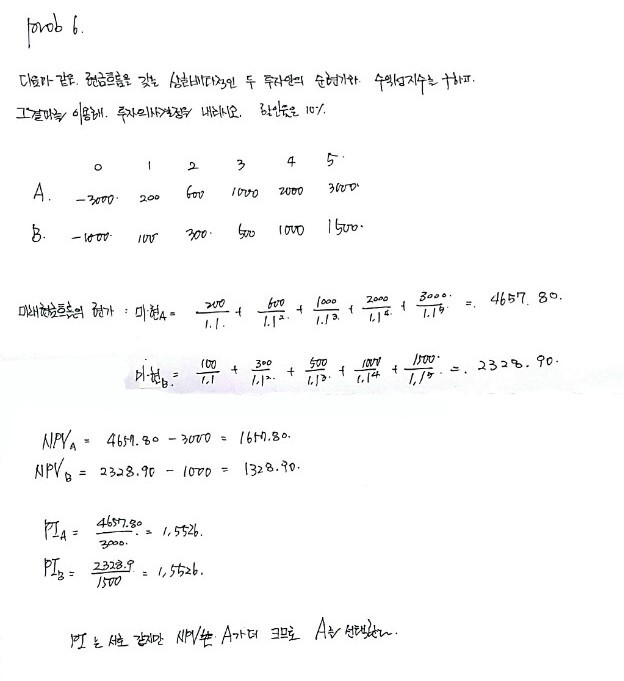 prob 6.
다음과 같은 현금흐름을 갖는 상호배타적인 두 투자안의 순현가와 수익성지수를 구하고.
그 결과를 이용해. 투자의사결정을 내리시오. 할인율은 10%.
0 1 2 3 4 5.
A. -3000. 200 600 1000 2000 3000.
B. -1000. 100 300. 500 1000 1500.
미래현금흐름의 현가 : 미.현A = 200/1.1. + 600/1.1². + 1000/1.1³. + 2000/1.1⁴. + 3000./1.1⁵ =. 4657.80.
미.현B. = 100/1.1 + 300/1.1². + 500/1.1³. + 1000/1.1⁴ + 1500./1.1⁵ =. 2328.90.
NPV_A = 4657.80 - 3000 = 1657.80.
NPV_B = 2328.90 - 1000 = 1328.90.
PI_A = 4657.80/3000. = 1.5526.
PI_B = 2328.9/1500 = 1.5526.
PI는 서로 같지만 NPV는 A가 더 크므로 A를 선택한다.